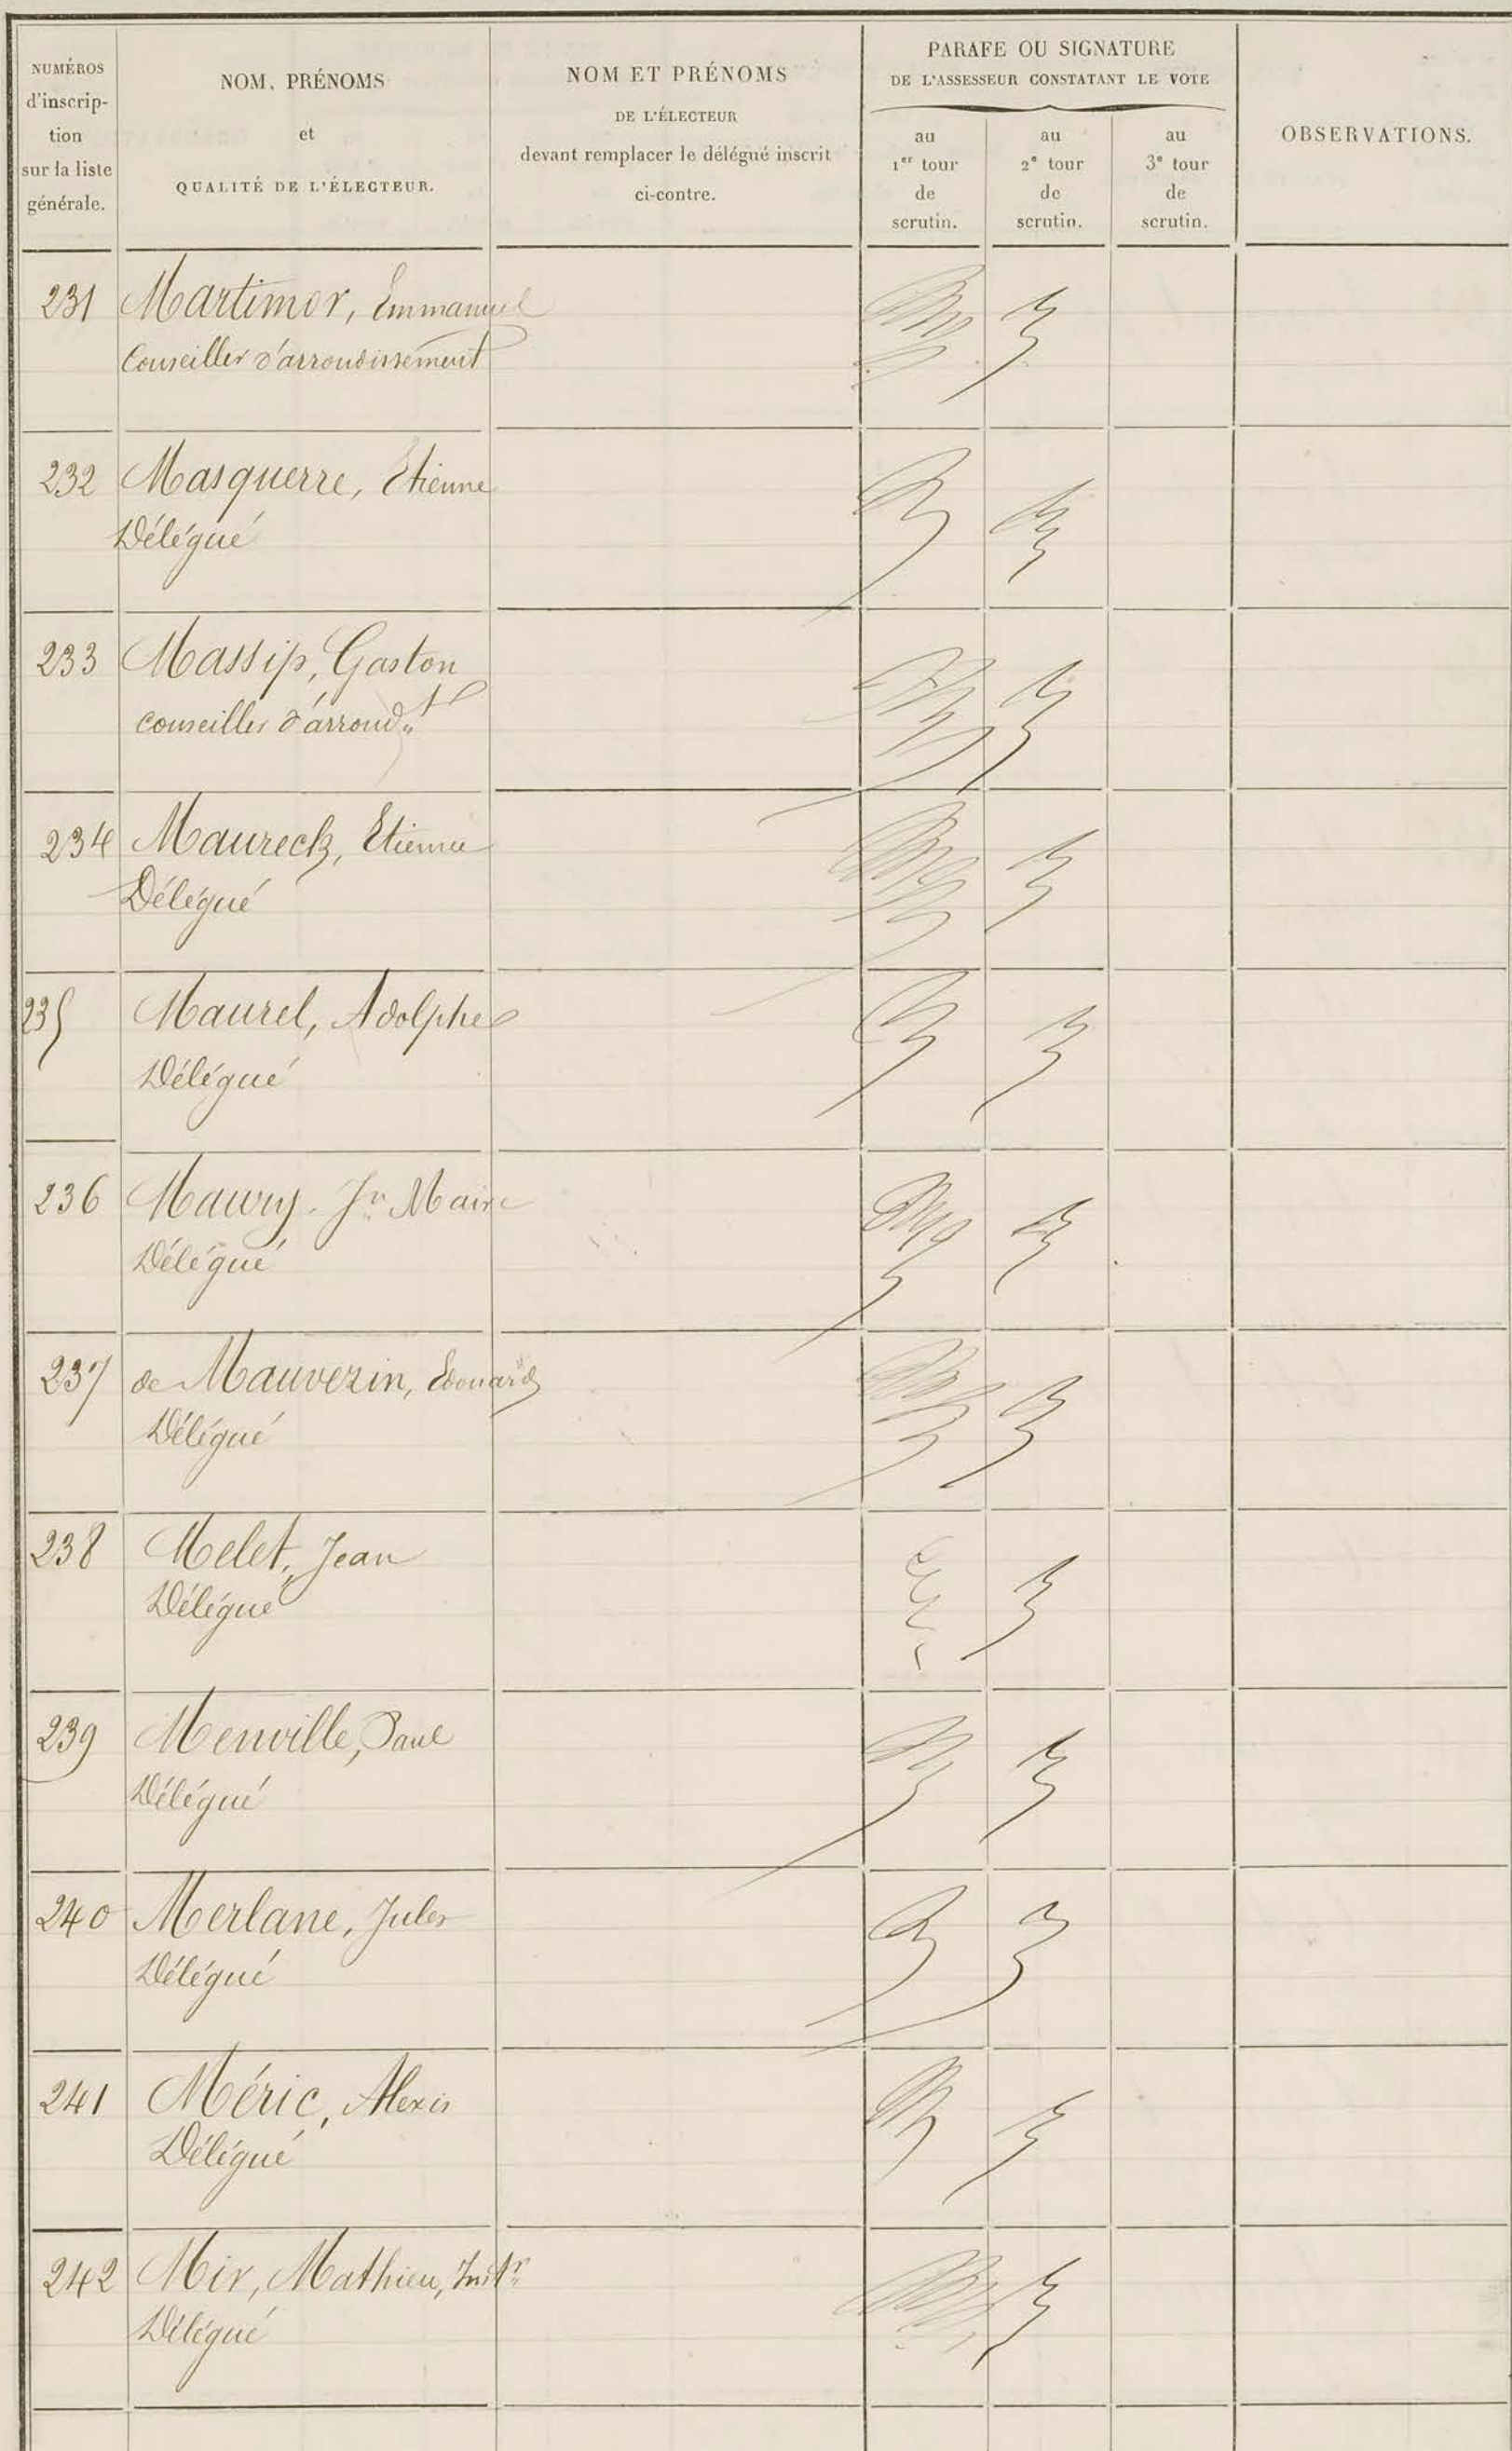 NUMÉROS
d'inscrip-
tion
sur la liste
générale.
NOM, PRÉNOMS
et
QUALITÉ DE L'ÉLECTEUR.
NOM ET PRÉNOMS
DE L'ÉLECTEUR
devant remplacer le délégué inscrit
ci-contre.
PARAFE OU SIGNATURE
DE L'ASSESSEUR CONSTATANT LE VOTE
au
1er tour
de
scrutin.
au
2e tour
de
scrutin.
au
3e tour
de
scrutin.
OBSERVATIONS.
231 Martimor, Emmanuel
Conseiller d'arrondissement
232 Masquerre, Etienne
Délégué
233 Massip, Gaston
Conseiller d'arrondt
234 Maureck, Etienne
Délégué
235 Maurel, Adolphe
Délégué
236 Maury Maire
Délégué
237 de Mauvezin, Edouard
Délégué
238 Melet, Jean
Délégué
239 Menville, Paul
Délégué
240 Merlane, Jules
Délégué
241 Méric, Alexis
Délégué
242 Mir, Mathieu, Instr
Délégué